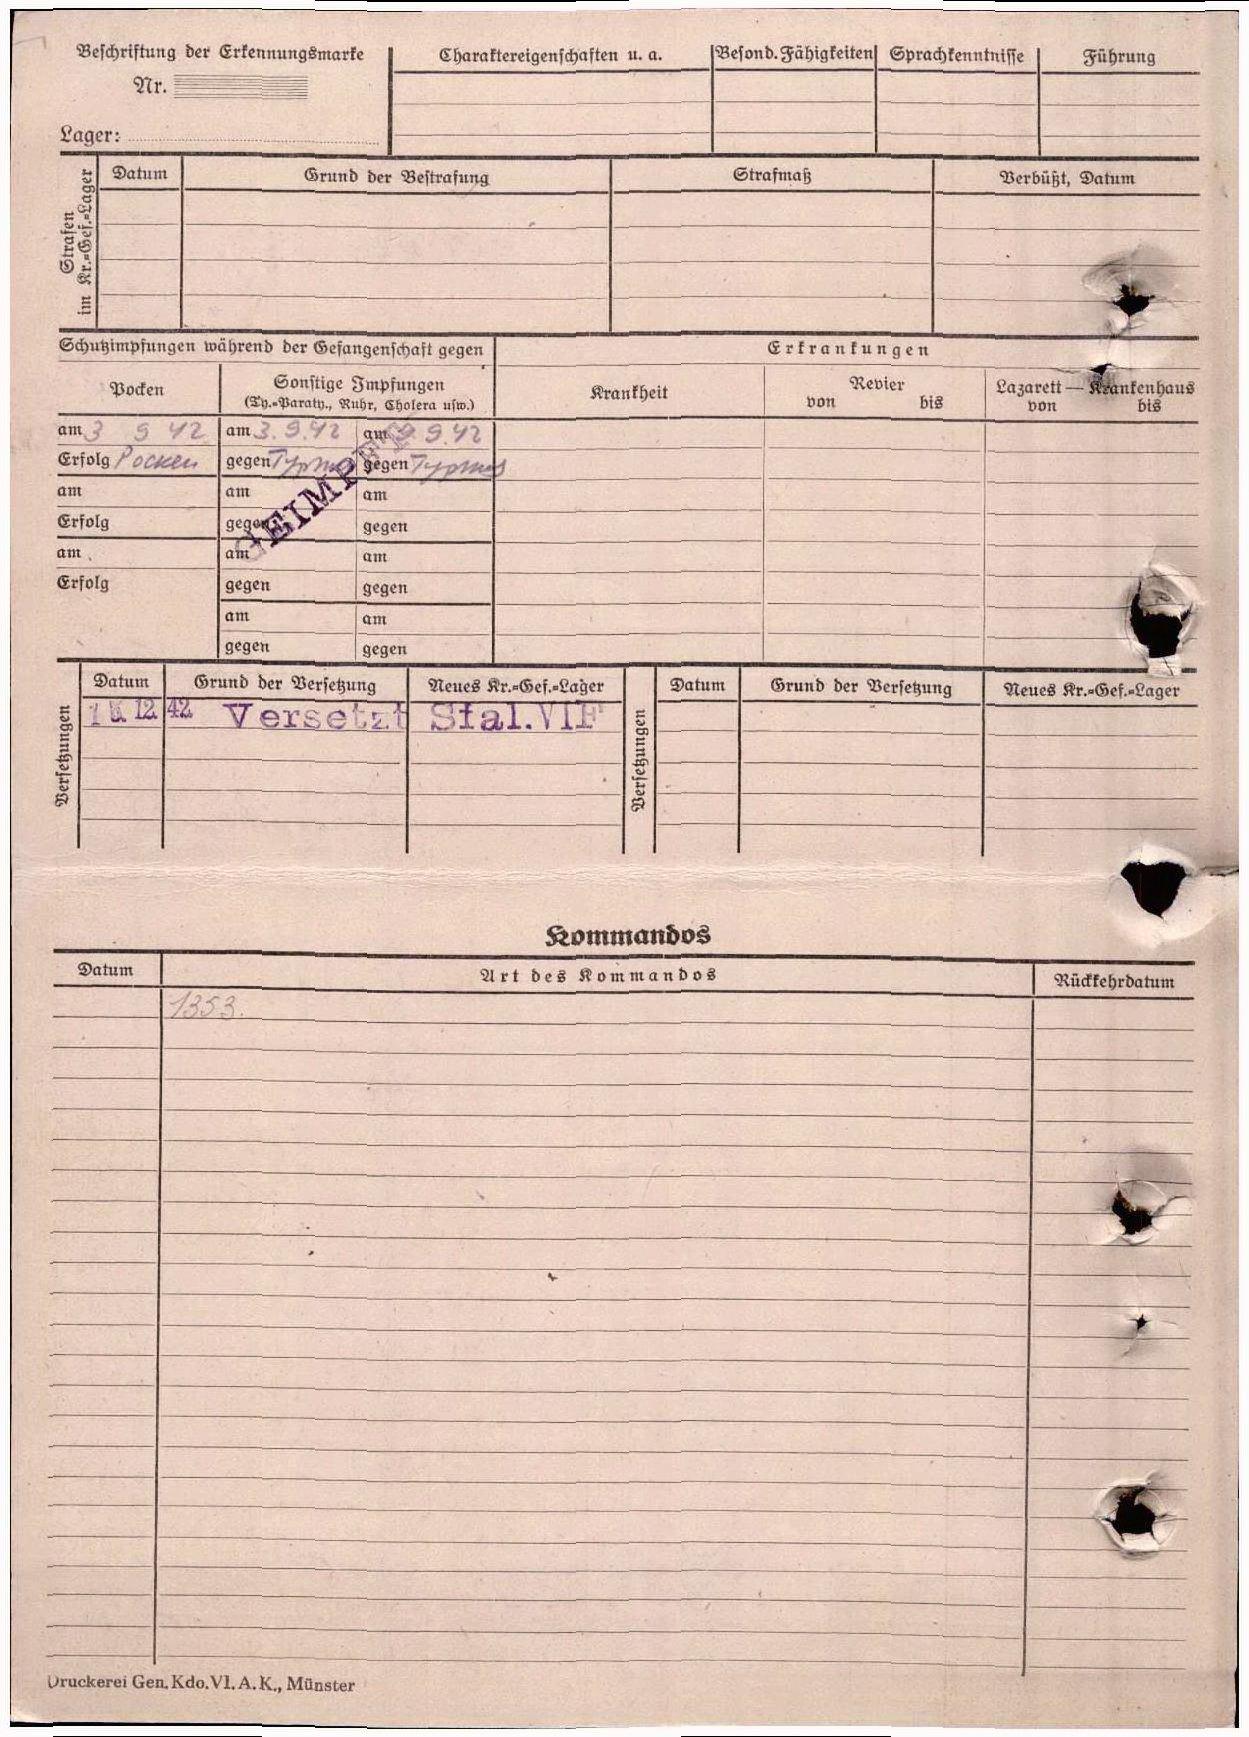 Beschriftung der Erkennungsmarke
Nr.
Lager:
Charaktereigenschaften u. a.
Besond. Fähigkeiten
Sprachkenntnisse
Führung
Strafen im Kr.=Gef.=Lager
Datum
Grund der Bestrafung
Strafmaß
Verbüßt, Datum
Schutzimpfungen während der Gefangenschaft gegen
Erkrankungen
Pocken
Sonstige Impfungen
(Ty.=Paraty., Ruhr, Cholera usw.)
Krankheit
Revier
von bis
Lazarett — Krankenhaus
von bis
am 3 9 42 am 3.9.42 am 9.9.42
Erfolg Pocken gegen Typhus gegen Typhus
GEIMPFT
am am am
Erfolg gegen gegen
am am am
Erfolg gegen gegen
am am
gegen gegen
Versetzungen
Datum Grund der Versetzung Neues Kr.=Gef.=Lager
12 42 Versetzt Stal. VI F
Versetzungen
Datum Grund der Versetzung Neues Kr.=Gef.=Lager
Kommandos
Datum Art des Kommandos Rückkehrdatum
1353.
Druckerei Gen. Kdo. VI. A. K., Münster